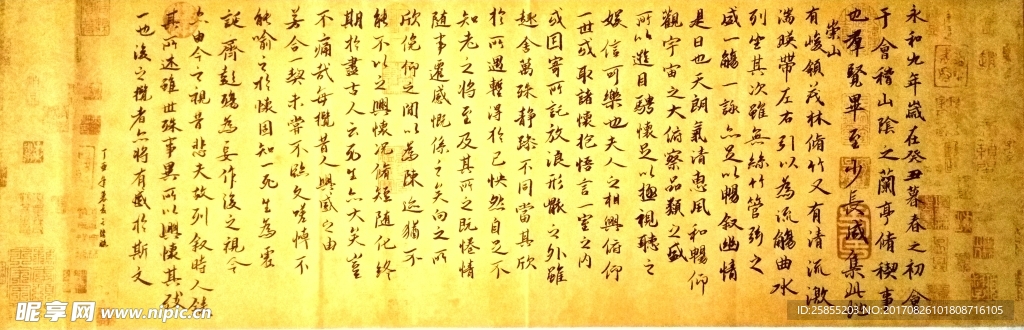 永和九年歲在癸丑暮春之初會
于會稽山陰之蘭亭脩稧事
也羣賢畢至少長咸集此地
崇山
有峻領茂林脩竹又有清流激
湍暎帶左右引以為流觴曲水
列坐其次雖無絲竹管弦之
盛一觴一詠亦足以暢叙幽情
是日也天朗氣清惠風和暢仰
觀宇宙之大俯察品類之盛
所以遊目騁懷足以極視聽之
娛信可樂也夫人之相與俯仰
一世或取諸懷抱悟言一室之內
或因寄所託放浪形骸之外雖
趣舍萬殊靜躁不同當其欣
於所遇暫得於己怏然自足不
知老之將至及其所之既惓情
隨事遷感慨係之矣向之所
欣俛仰之間以為陳迹猶不
能不以之興懷況脩短隨化終
期於盡古人云死生亦大矣豈
不痛哉每攬昔人興感之由
若合一契未嘗不臨文嗟悼不
能喻之於懷固知一死生為虛
誕齊彭殤為妄作後之視今
亦由今之視昔悲夫故列叙時人錄
其所述雖世殊事異所以興懷其致
一也後之攬者亦將有感於斯文
昵享网 www.nipic.cn
ID:25855203 NO:20170826101808716105